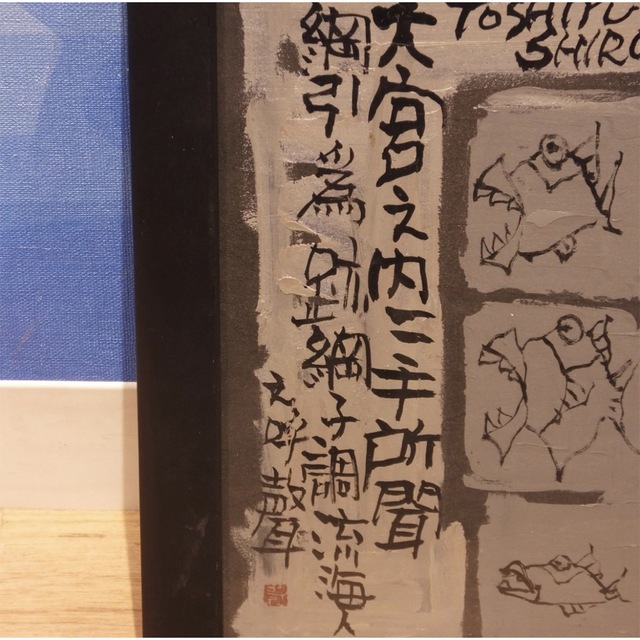 TOSHIYU
SHIRO
大宮之内二手所聞
網引爲跡網子調流海人
之呼聲